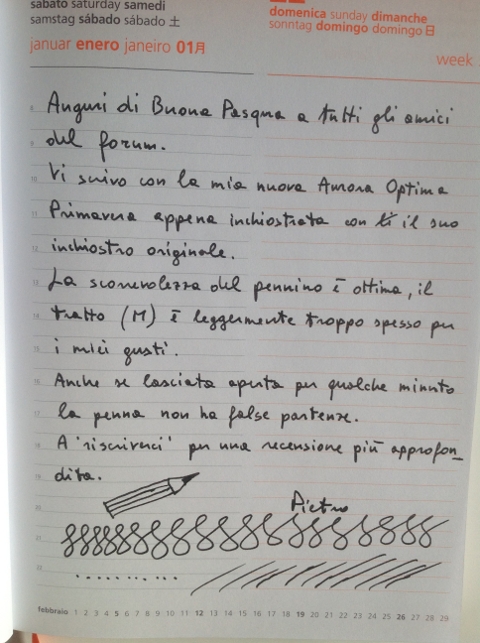 sabato saturday samedi
samstag sábado sábado 土
domenica sunday dimanche
sonntag domingo domingo 日
januar enero janeiro 01月
week
8
Auguri di Buona Pasqua a tutti gli amici
9
del forum.
10
Vi scrivo con la mia nuova Aurora Optima
11
Primavera appena inchiostrata con il suo
12
inchiostro originale.
13
La scorrevolezza del pennino è ottima, il
14
tratto (M) è leggermente troppo spesso per
15
i miei gusti.
16
Anche se lasciata aperta per qualche minuto
17
la penna non ha false partenze.
18
A "riscriverci" per una recensione più approfon_
19
dita.
20
Pietro
21
22
febbraio 1 2 3 4 5 6 7 8 9 10 11 12 13 14 15 16 17 18 19 20 21 22 23 24 25 26 27 28 29